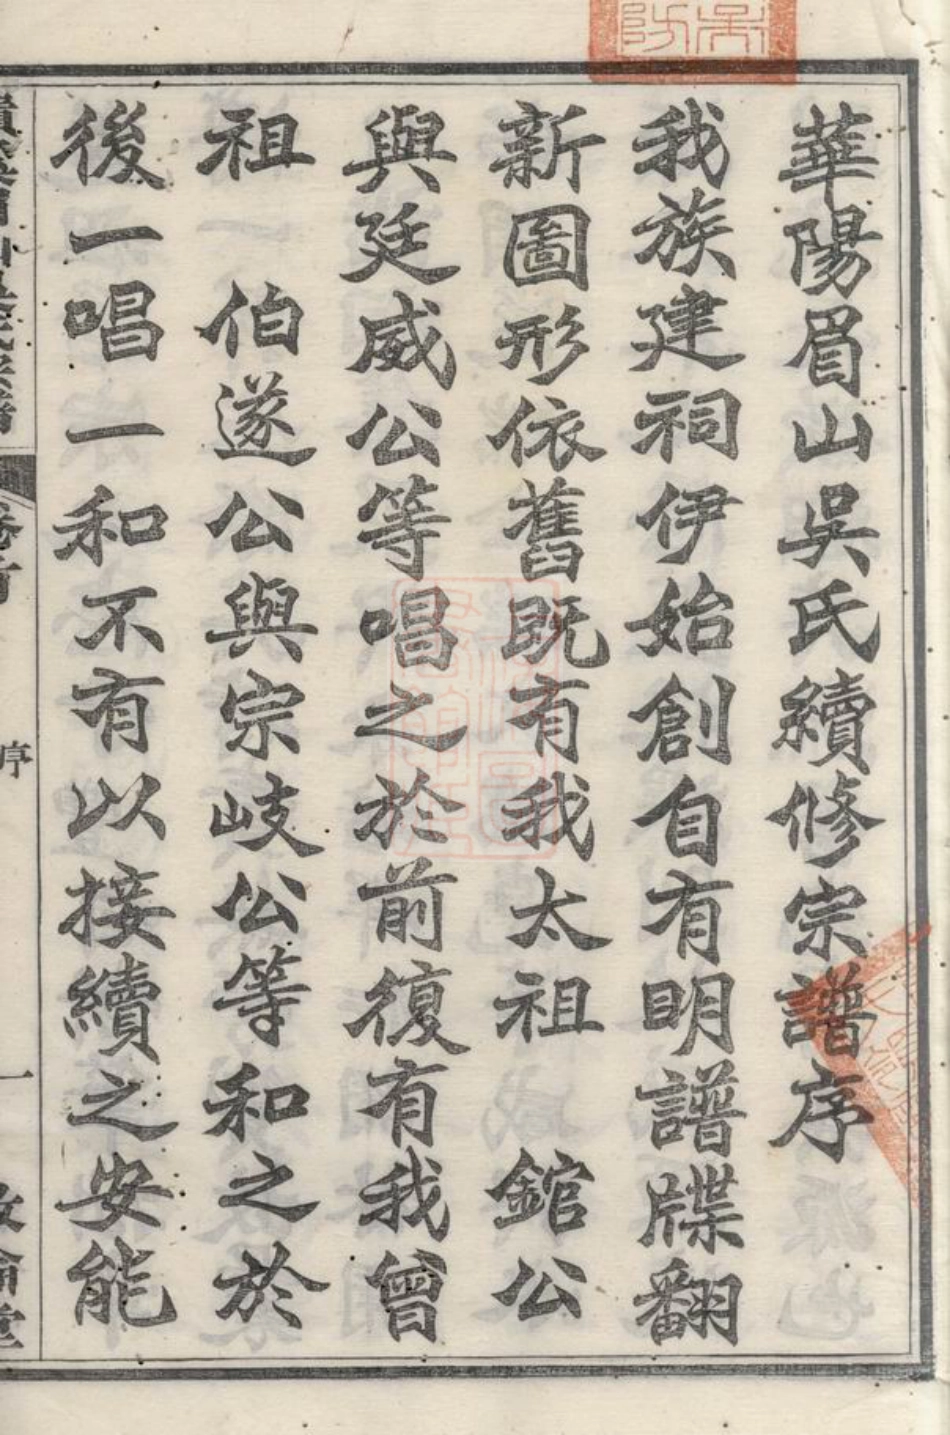 華陽眉山吳氏續修宗譜序
我族建祠伊始創自有明譜牒翻
新圖形依舊既有我太祖　錧公
與廷威公等唱之於前復有我曾
祖　伯遂公與宗岐公等和之於
後一唱一和不有以接續之安能
卷首
序
一